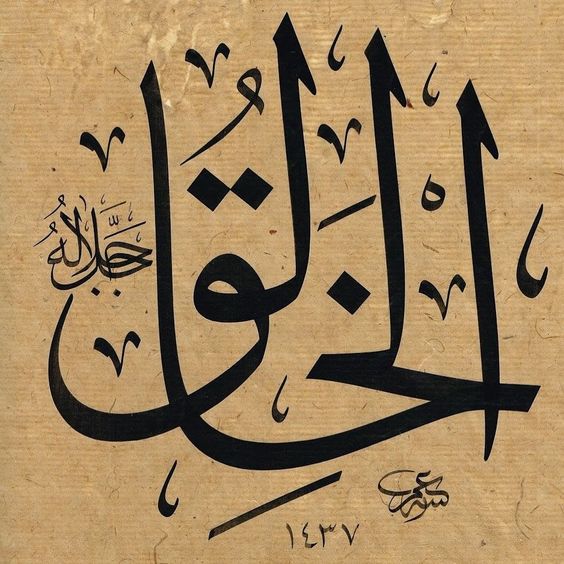 الْخَالِقُ
جَلَّ جَلَالُهُ
١٤٣٧